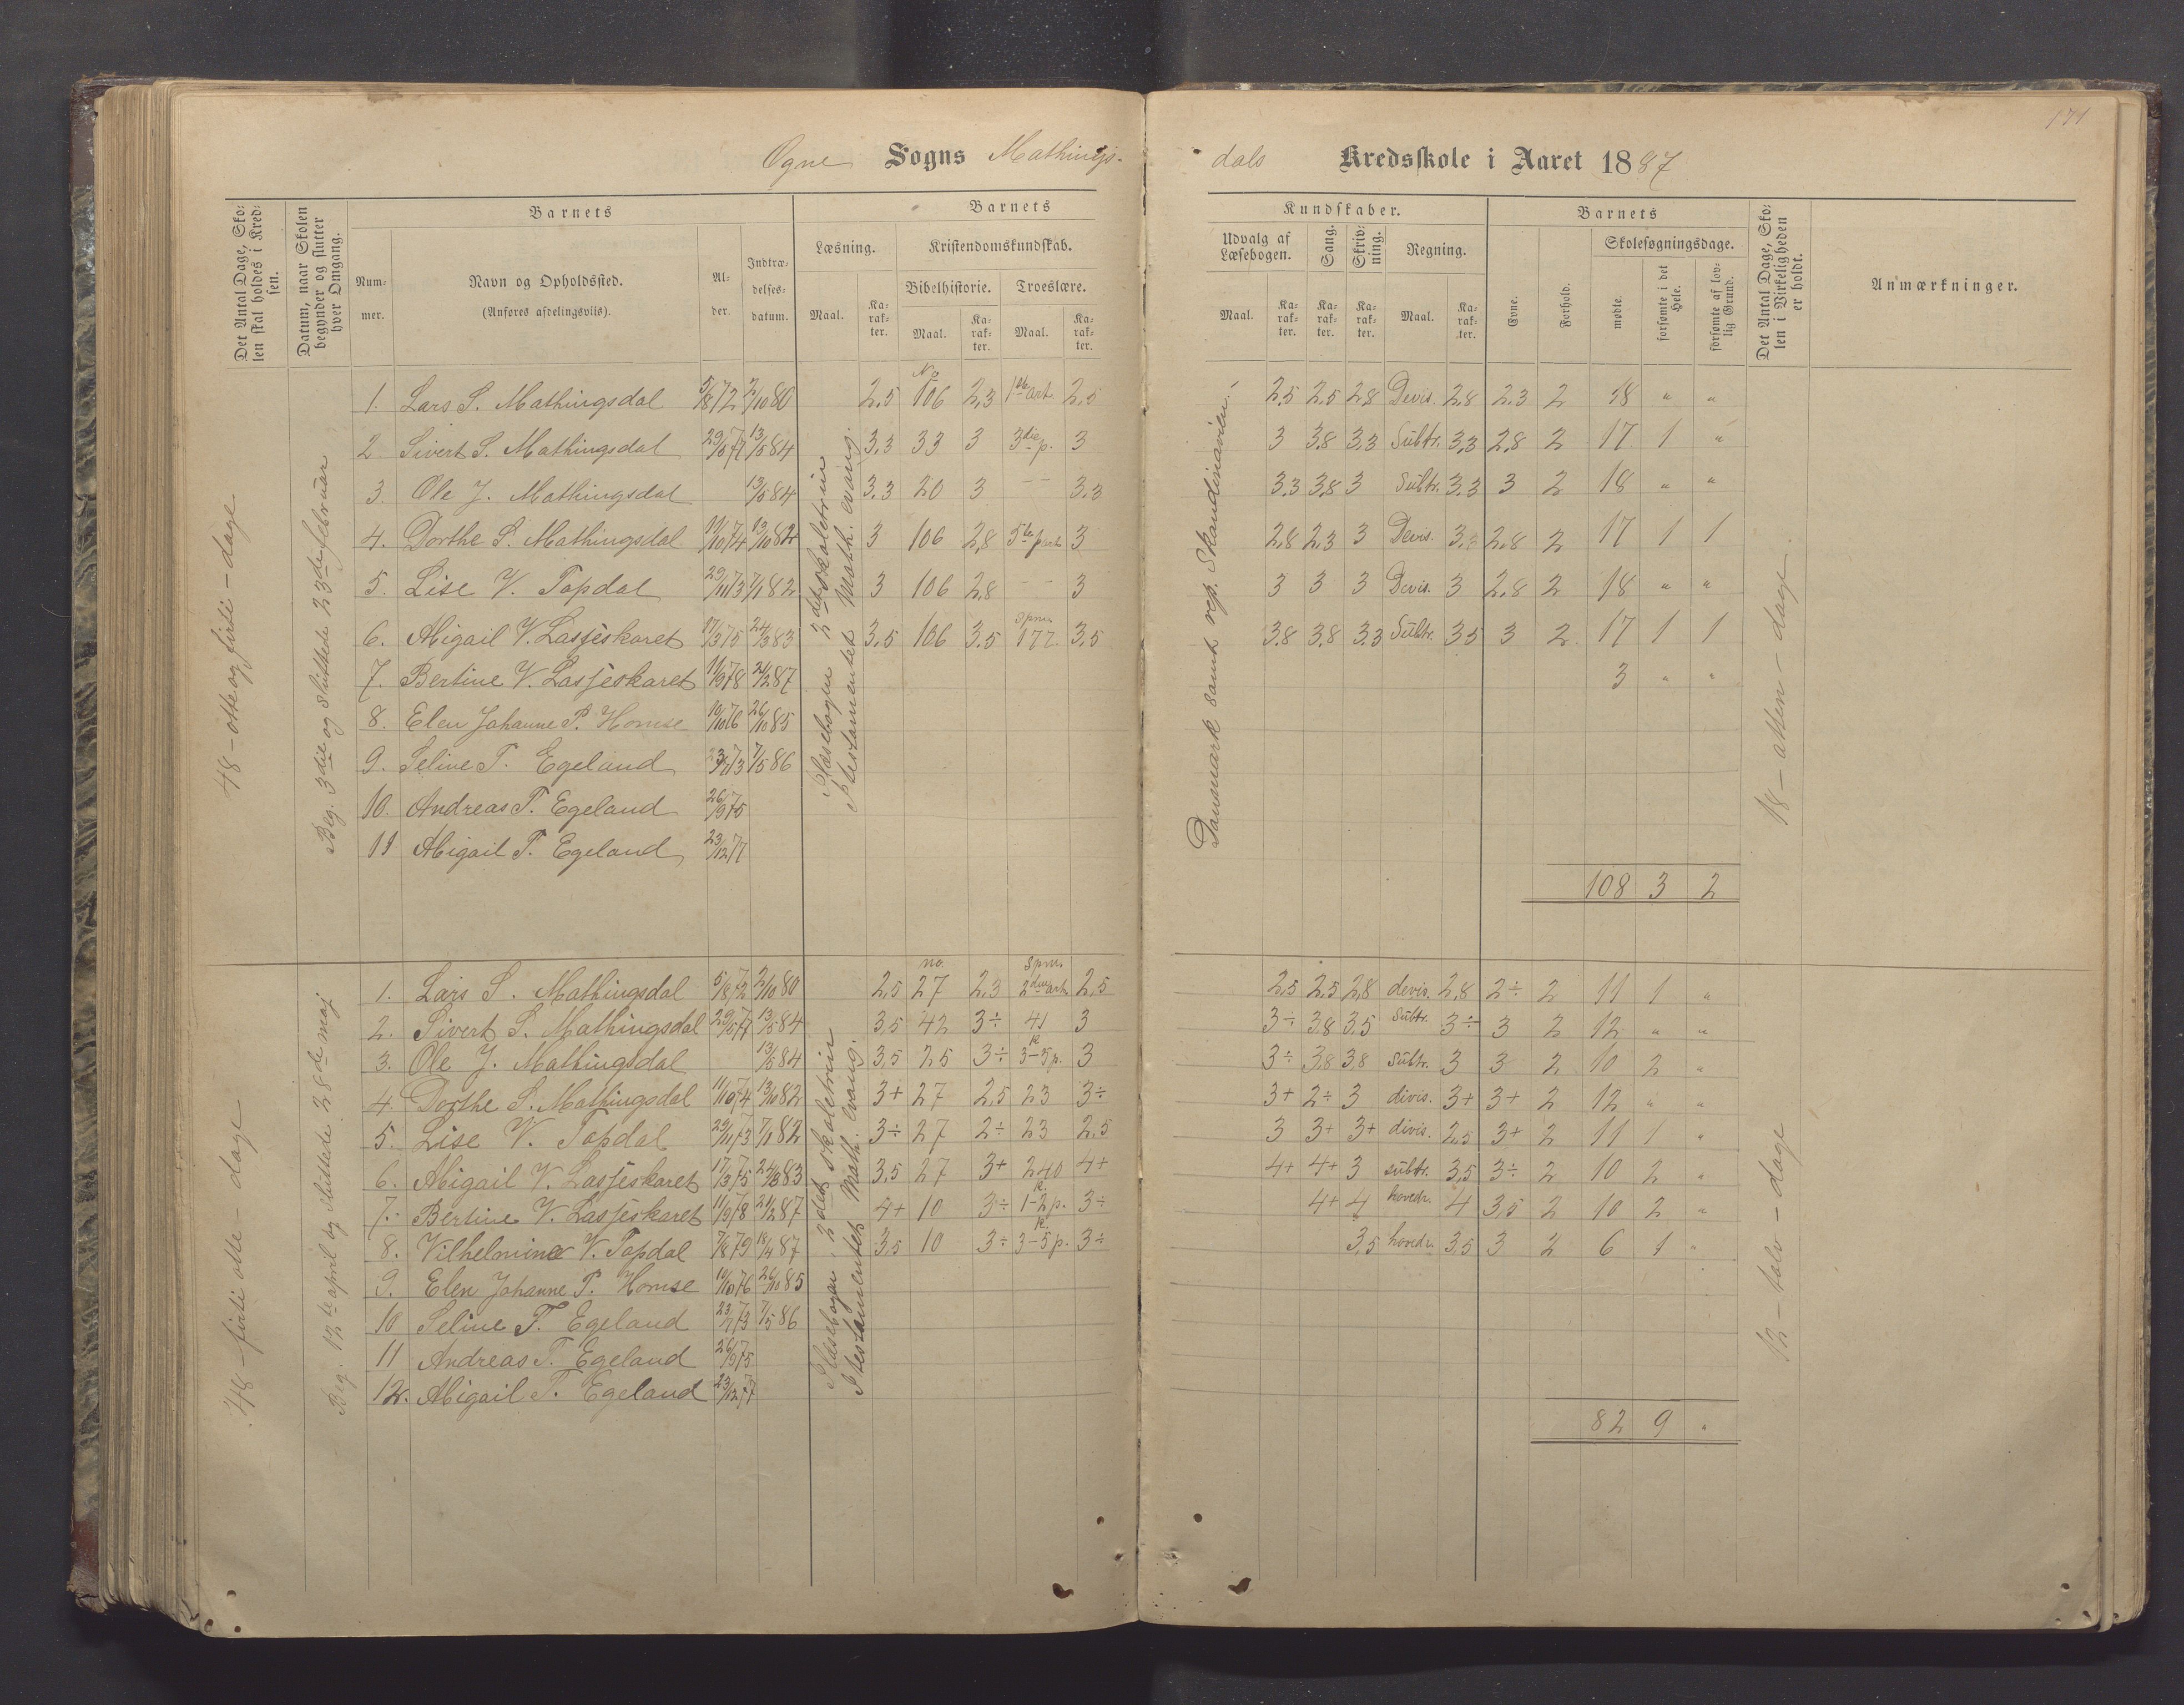 171
Ogne Sogns Mathings-
dals Kredsskole i Aaret 1887
Det Antal Dage, Skolen skal holdes i Kredsen.
Datum, naar Skolen begynder og slutter hver Omgang.
Barnets
Nummer.
Navn og Opholdssted.
(Anføres afdelingsviis).
Alder.
Indtrædelsesdatum.
Barnets
Læsning.
Maal.
Karakter.
Kristendomskundskab.
Bibelhistorie.
Maal.
Karakter.
Troeslære.
Maal.
Karakter.
Kundskaber.
Udvalg af Læsebogen.
Maal.
Karakter.
Sang.
Karakter.
Skrivning.
Karakter.
Regning.
Maal.
Karakter.
Barnets
Evne.
Forhold.
Skolesøgningsdage.
mødte.
forsømte i det Hele.
forsømte af lovlig Grund.
Det Antal Dage, Skolen i Virkeligheden er holdt.
Anmærkninger.
48 – otte og firti – dage
Beg. 3die og sluttede 23de februar
I læsebogen 2det skoletrin
I testamentet Math. evang.
Danmark samt rep. Skandinavien.
18 – atten – dage.
1. Lars S. Mathingsdal 5/8 72 2/10 80 2,5 No 106 2,3 1ste art. 2,5 2,5 2,5 2,8 Devis. 2,8 2,3 2 18 " "
2. Sivert S. Mathingsdal 29/5 77 13/5 84 3,3 33 3 3die p. 3 3 3,8 3,3 Subtr. 3,3 2,8 2 17 1 "
3. Ole J. Mathingsdal 13/5 84 3,3 20 3 – – 3,3 3,3 3,8 3 Subtr. 3,3 3 2 18 " "
4. Dorthe S. Mathingsdal 11/10 74 13/10 82 3 106 2,8 5te part 3 2,8 2,3 3 Devis. 2,8 2 17 1 1
5. Lise V. Topdal 29/11 73 7/1 82 3 106 2,8 – – 3 3 3 3 Devis. 3 2,8 2 18 " "
6. Abigail V. Lasjeskaret 17/3 75 24/3 83 3,5 106 3,5 spm. 177. 3,5 3,8 3,8 3,3 Subtr. 3,5 3 2 17 1 1
7. Bertine V. Lasjeskaret 11/9 78 21/2 87 3 " "
8. Elen Johanne P. Homse 10/10 76 26/10 85
9. Seline T. Egeland 23/7 73 7/5 86
10. Andreas T. Egeland 26/9 75
11 Abigail T. Egeland 23/12 77
108 3 2
48 – firti otte – dage
Beg. 12te april og sluttede 28de maj
I læsebogen 2det skoletrin
I testamentet Math. evang.
12 – tolv – dage
1. Lars S. Mathingsdal 5/8 72 2/10 80 2,5 no. 27 2,3 spm. 2den art. 2,5 2,5 2,5 2,8 devis. 2,8 2÷ 2 11 1 "
2. Sivert S. Mathingsdal 29/5 77 13/5 84 3,5 42 3÷ 41 3 3÷ 3,8 3,5 Subtr. 3÷ 3 2 12 " "
3. Ole J. Mathingsdal 13/5 84 3,5 25 3÷ k 3–5 p. 3 3÷ 3,8 3,8 Subtr. 3 3 2 10 2 "
4. Dorthe S. Mathingsdal 11/10 74 13/10 82 3+ 27 2,5 23 3÷ 3+ 2÷ 3 divis. 3+ 3+ 2 12 " "
5. Lise V. Topdal 29/11 73 7/1 82 3÷ 27 2÷ 23 2,5 3 3+ 3+ divis. 2,5 3+ 2 11 1 "
6. Abigail V. Lasjeskaret 17/3 75 24/3 83 3,5 27 3+ 240 4+ 4+ 4+ 3 subtr. 3,5 3÷ 2 10 2 "
7. Bertine V. Lasjeskaret 11/9 78 21/2 87 4+ 10 3÷ k. 1–2 p. 3÷ 4+ 4 hovedr. 4 3,5 2 10 2 "
8. Vilhelmine V. Topdal 7/8 79 18/4 87 3,5 10 3÷ k. 3–5 p. 3÷ 3,5 hovedr. 3,5 3 2 6 1 "
9. Elen Johanne P. Homse 10/10 76 26/10 85
10 Seline T. Egeland 23/7 73 7/5 86
11 Andreas T. Egeland 26/9 75
12. Abigail T. Egeland 23/12 77
82 9 "